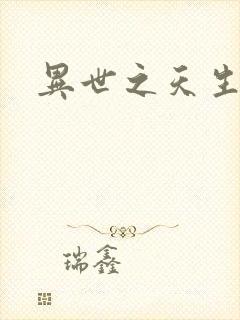 異世之天生
瑞鑫